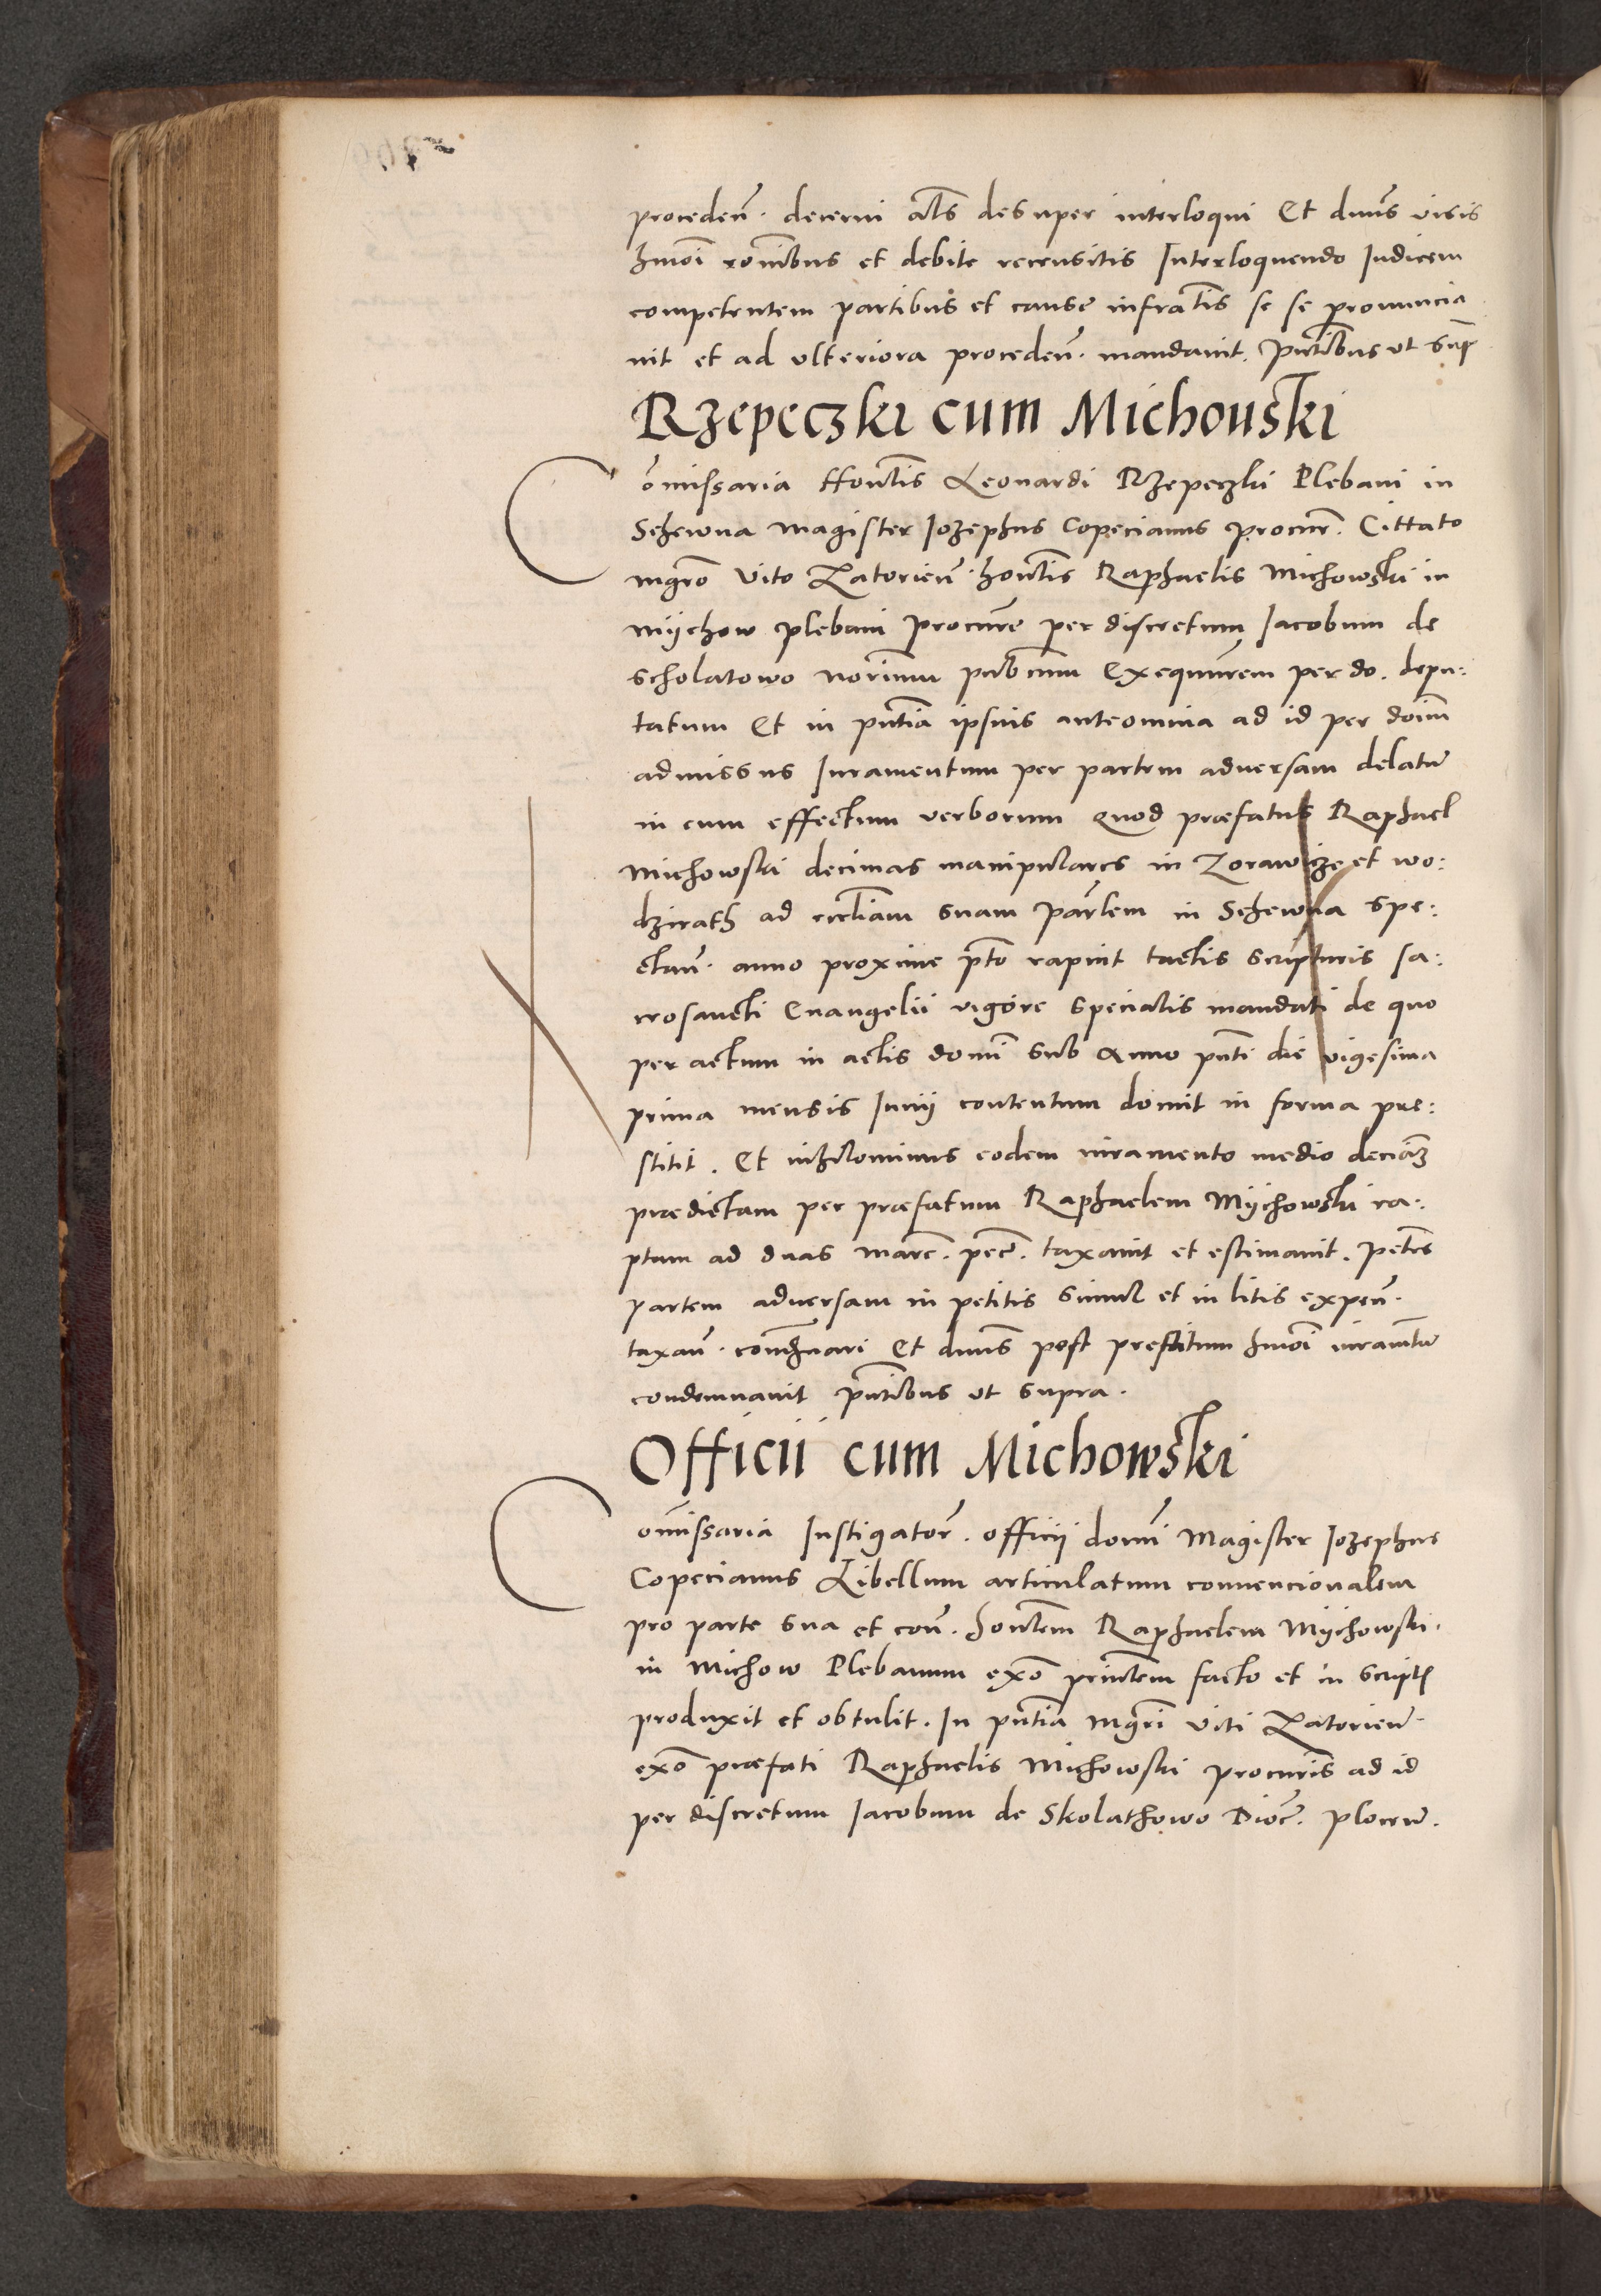 proceden̄. decerni al̄s desuper interloqui Et dnūs visis
hmōi rōnibus et debite recensitis Interloquendo Iudicem
competentem partibus et cause infratīs se se pronuncia
uit et ad vlteriora proceden̄. mandauit. pn̄tibus vt sup̄
Rzepeczki cum Michouski
Cōmissaria Hontīs Leonardi Rzepeczki Plebani in
Sezewna magister Iozephus Copecianus procur̄. Cittato
mgr̄o Vito Zatorien̄. hontīs Raphaelis Michowski in
mÿchow plebani procur̄e per discretum Iacobum de
scholatowo norīum pub͞cum Exequūrem per do. depu:
tatum Et in pn̄tia ipsius anteomnia ad id per doīm
admissus Iuramentum per partem aduersam delatū
in eum effectum verborum quod præfatus Raphael
Michowski decimas manipulares in Zorawicze et wo:
dzirath ad ecclīam suam par̄lem in Sezewna spe:
ctan̄. anno proxime pt̄o rapuit tactis scripturis sa:
crosancti Euangelii vigore specialis mandati de quo
per actum in actis domī sub Anno pn̄ti die vigesima
prima mensis Iunij contentum domit in forma pre:
stitit. Et nihilominus eodem iuramento medio deciāz
prædictam per præfatum Raphaelem Mÿchowski ra:
ptam ad duas marc̄. pec̄. taxauit et estimauit. petēs
partem aduersam in petitis simul et in litis expen̄.
taxan̄. condēnari Et dnūs post prestitum hmōi iuramn̄tū
condemnauit pn̄tibus vt supra.
Officii cum Michowski
Com̄issaria Instigator̄. officij domī Magister Iozephus
Copecianus Libellum articulatum conuencionalem
pro parte sua et con̄. hontēm Raphaelem Mÿchowski.
in Michow Plebanum exō prin̄lem facto et in script͞
produxit et obtulit. In pn̄tia mgr̄i Viti Zatorien̄.
exō præfati Raphaelis Michowski procurīs ad id
per discretum Iacobum de Skolathowo Dioc̄. plocen̄.